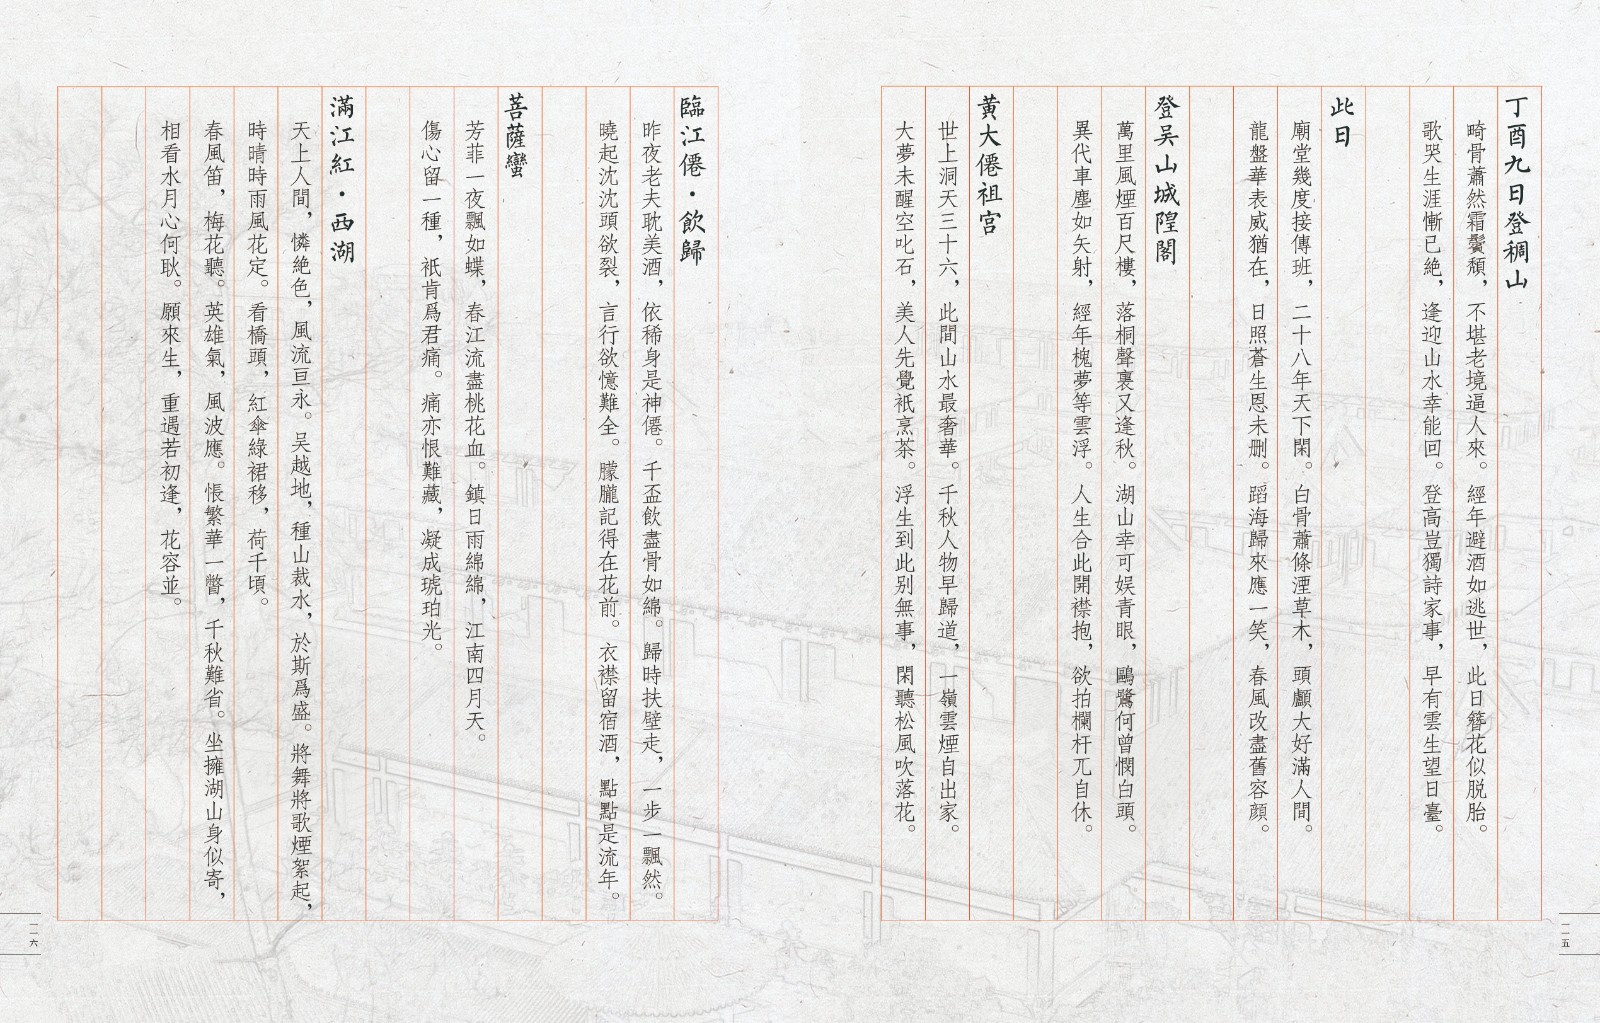 丁酉九日登稠山
畸骨蕭然霜鬢頹，不堪老境逼人來。經年避酒如逃世，此日簪花似脱胎。
歌哭生涯慚已絶，逢迎山水幸能回。登高豈獨詩家事，早有雲生望日臺。
此日
廟堂幾度接傳班，二十八年天下閑。白骨蕭條湮草木，頭顱大好滿人間。
龍盤華表威猶在，日照蒼生恩未删。蹈海歸來應一笑，春風改盡舊容顔。
登吴山城隍閣
萬里風煙百尺樓，落桐聲裏又逢秋。湖山幸可娱青眼，鷗鷺何曾憫白頭。
異代車塵如矢射，經年槐夢等雲浮。人生合此開襟抱，欲拍欄杆兀自休。
黄大僊祖宫
世上洞天三十六，此間山水最奢華。千秋人物早歸道，一嶺雲煙自出家。
大夢未醒空叱石，美人先覺衹烹茶。浮生到此别無事，閑聽松風吹落花。
一一五
臨江僊·飲歸
昨夜老夫耽美酒，依稀身是神僊。千盃飲盡骨如綿。歸時扶壁走，一步一飄然。
曉起沈沈頭欲裂，言行欲憶難全。朦朧記得在花前。衣襟留宿酒，點點是流年。
菩薩蠻
芳菲一夜飄如蝶，春江流盡桃花血。鎮日雨綿綿，江南四月天。
傷心留一種，衹肯爲君痛。痛亦恨難藏，凝成琥珀光。
滿江紅·西湖
天上人間，憐絶色，風流亘永。吴越地，種山裁水，於斯爲盛。將舞將歌煙絮起，
時晴時雨風花定。看橋頭，紅傘緑裙移，荷千頃。
春風笛，梅花聽。英雄氣，風波應。悵繁華一瞥，千秋難省。坐擁湖山身似寄，
相看水月心何耿。願來生，重遇若初逢，花容並。
一一六